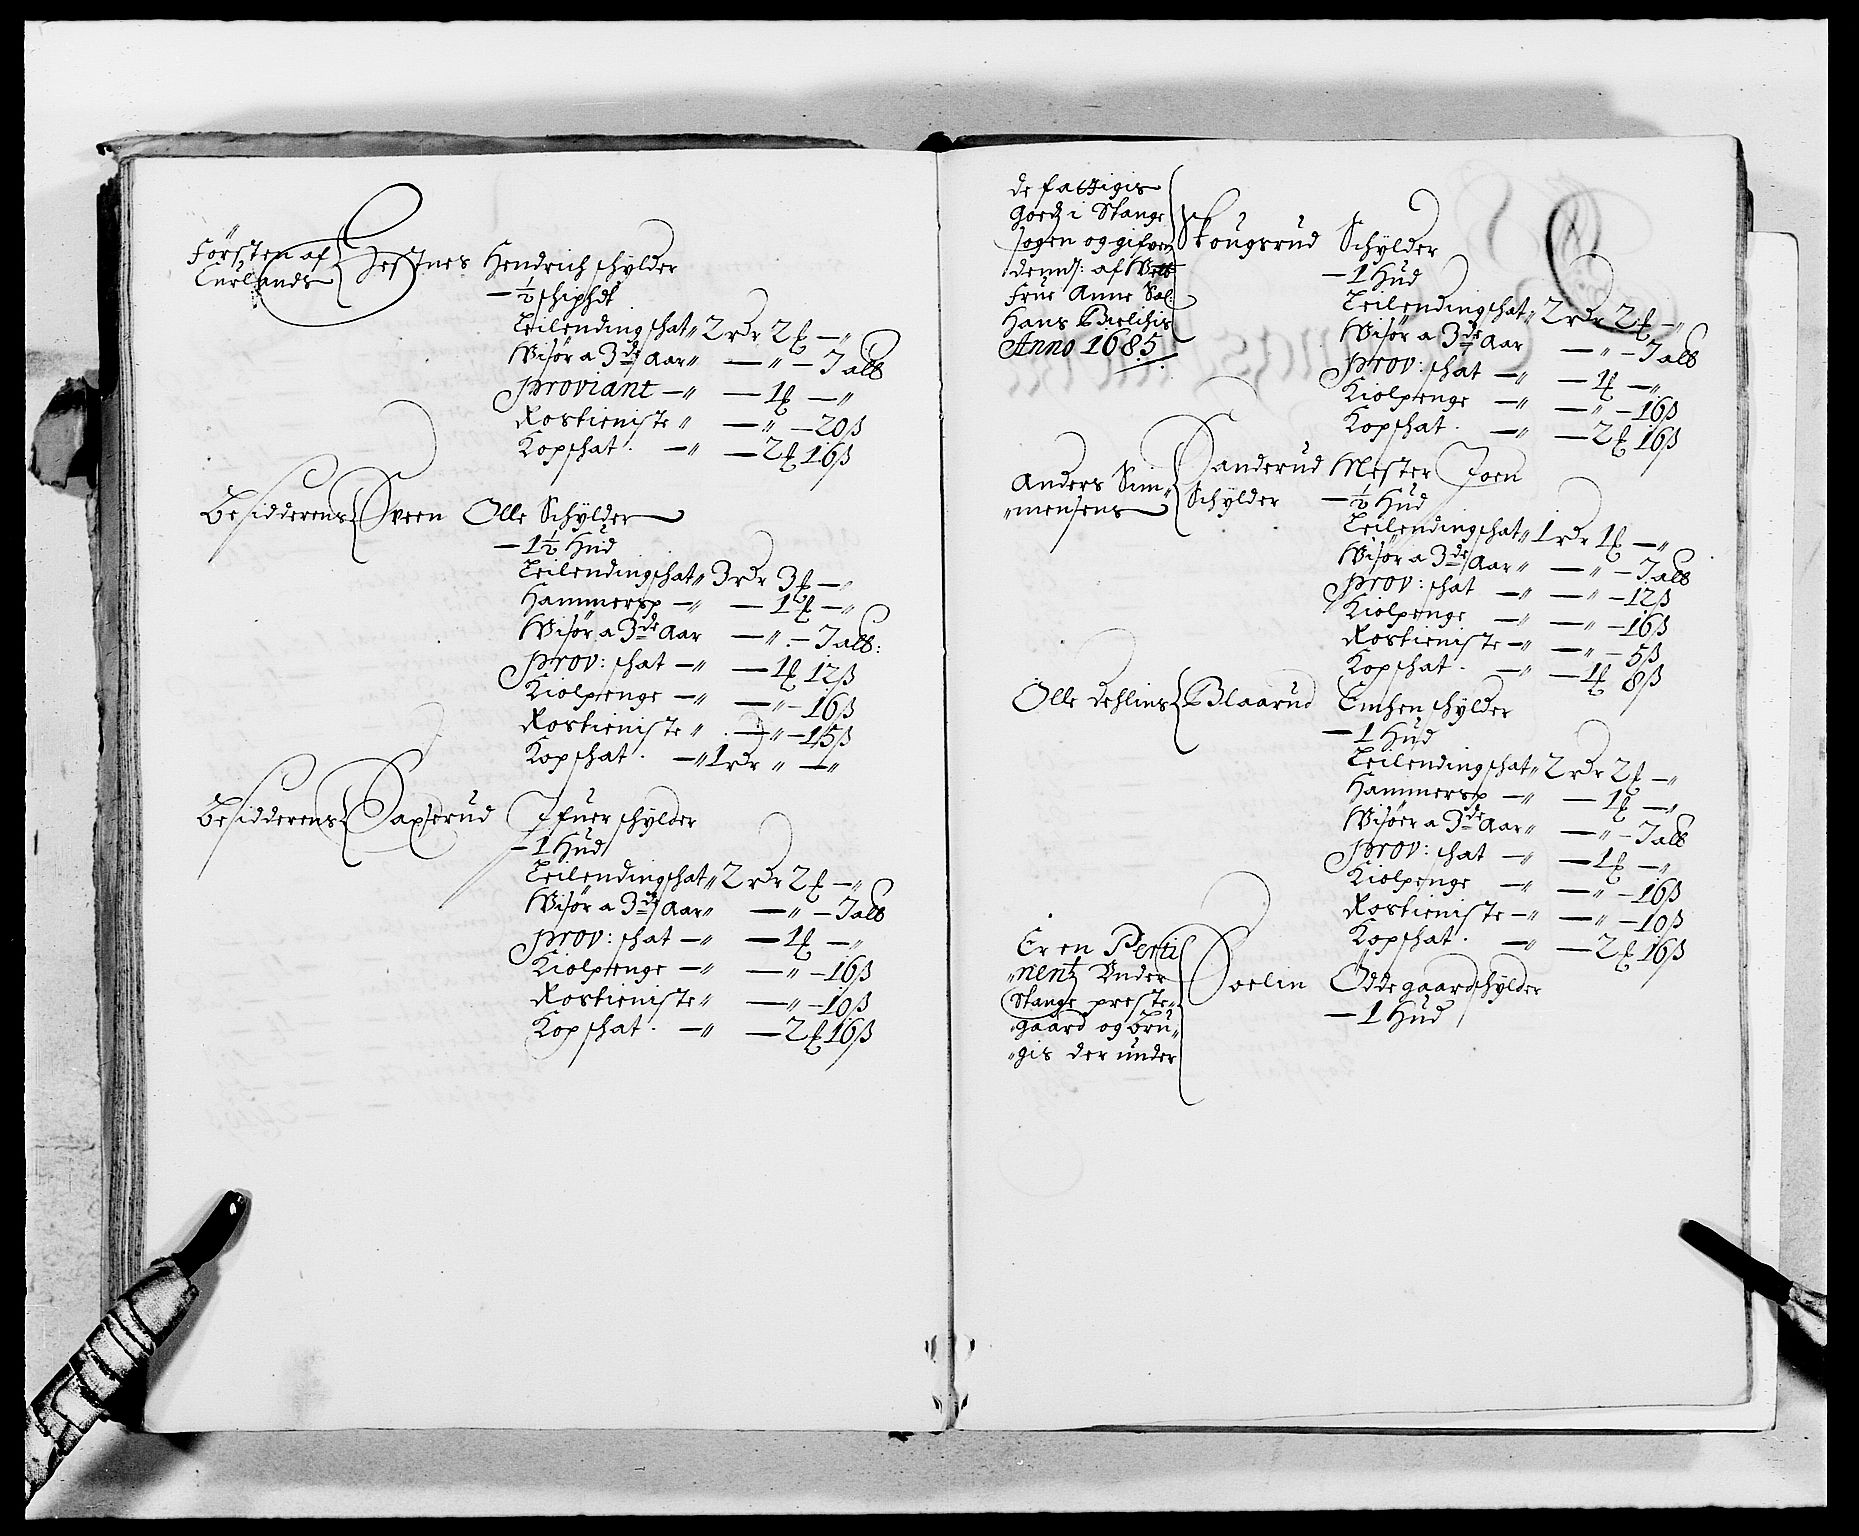 Försten af
Curlands
Hestnes Hendrich schylder
— ½ schiphdt
Leilendingschat „ 2 rdr 2 — „
Wisör a 3de Aar „ — „ — 7 alb
Proviant — „ — 1 — „
Rostieniste „ — „ — 20 ß
Kopschat . — „ — 2 16 ß
Besidderens Sveen Olle Schÿlder
— 1½ Hud
Leilendingschat „ 3 rdr 3 — „
Hammersp — „ — 1 — „
Wisör a 3de Aar — „ — 7 alb:
Prov: schat — „ — 1 12 ß
Kiolpenge — „ — „ — 16 ß
Rostieniste „ — „ — 15 ß
Kopschat . — „ 1 rdr „ — „
Besidderens Saxserud Ifuer schylder
— 1 Hud
Leilendingschat „ 2 rdr 2 — „
Wisör a 3de Aar „ — „ — 7 alb
Prov: schat — „ — 1 — „
Kiolpenge — „ — „ — 16 ß
Rostieniste „ — „ — 10 ß
Kopschat . — „ — 2 16 ß
de fattigis
Goedz i Stange
sogen og gifven
dennd: af
Frue Anne Sal:
Hans Bielchis
Anno 1685
Skougsrud Schÿlder
— 1 Hud
Leilendingschat „ 2 rdr 2 — „
Wisör a 3de Aar — „ — 7 alb
Prov: schat — „ — 1 — „
Kiolpenge — „ — „ — 16 ß
Kopschat . — „ — 2 16 ß
Anders Sim„
„mensens
Sanderud Mester Joen
Schÿlder — ½ Hud
Leilendingschat „ 1 rdr 1 — „
Wisör a 3de Aar „ — „ — 7 alb
Prov: schat — „ — „ — 12 ß
Kiolpenge — „ — „ — 16 ß
Rostieniste — „ — „ — 5 ß
Kopschat . — „ — 1 8 ß
Olle Dehlins Blaarud Emben schylder
— 1 Hud
Leilendingschat „ 2 rdr 2 — „
Hammersp — „ — 1 — „
Wisöer a 3de Aar „ — „ — 7 alb
Prov: schat — „ — 1 — „
Kiolpenge — „ — „ — 16 ß
Rostieniste — „ — „ — 10 ß
Kopschat . — „ — 2 16 ß
Er en Perti
„nentz Under
Stange preste„
gaard og bru„
„gis der under
Soelin Ödegaard schylder
— 1 Hud